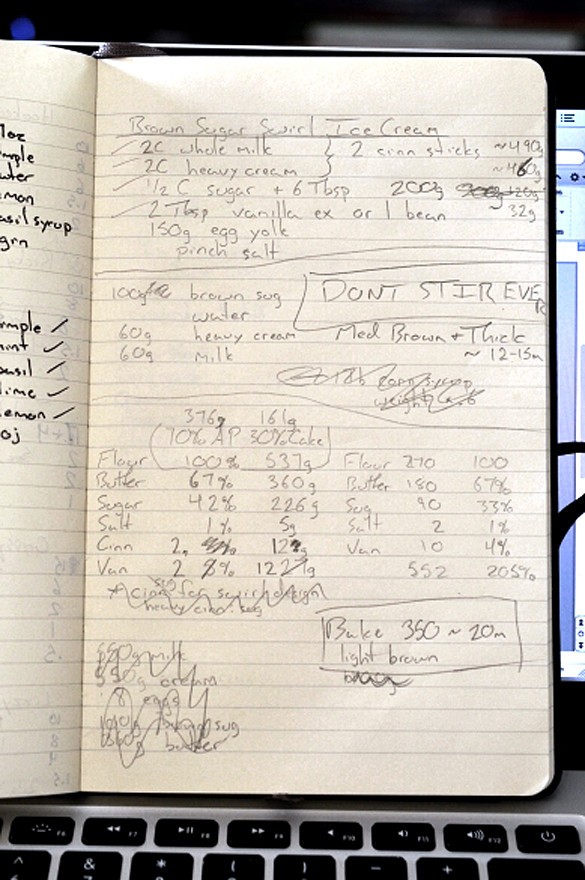 1oz
water
lemon
basil syrup
gin
mint ✓
basil ✓
lime ✓
lemon ✓
oj
Brown Sugar Swirl Ice Cream
2C whole milk } 2 cinn sticks ~490g
2C heavy cream ~460g
1/2 C sugar + 6 Tbsp 200g
2 Tbsp vanilla ex or 1 bean 32g
150g egg yolk
pinch salt
100g brown sug DONT STIR EVER
water
60g heavy cream Med Brown + Thick
60g milk ~ 12-15m
376g 161g
70% AP 30% Cake
Flour 100% 537g Flour 270 100
Butter 67% 360g Butter 180 67%
Sugar 42% 226g Sug 90 33%
Salt 1% 5g Salt 2 1%
Cinn 2. 12g Van 10 4%
Van 2 12 g 552 205%
* cinn for swirl design
heavy cinn. sug
Bake 350 ~ 20m
light brown
550g milk
550g cream
8 eggs
brown sug
butter
F6 F7 F8 F9 F10 F11 F12
^ & * ( ) – +
6 7 8